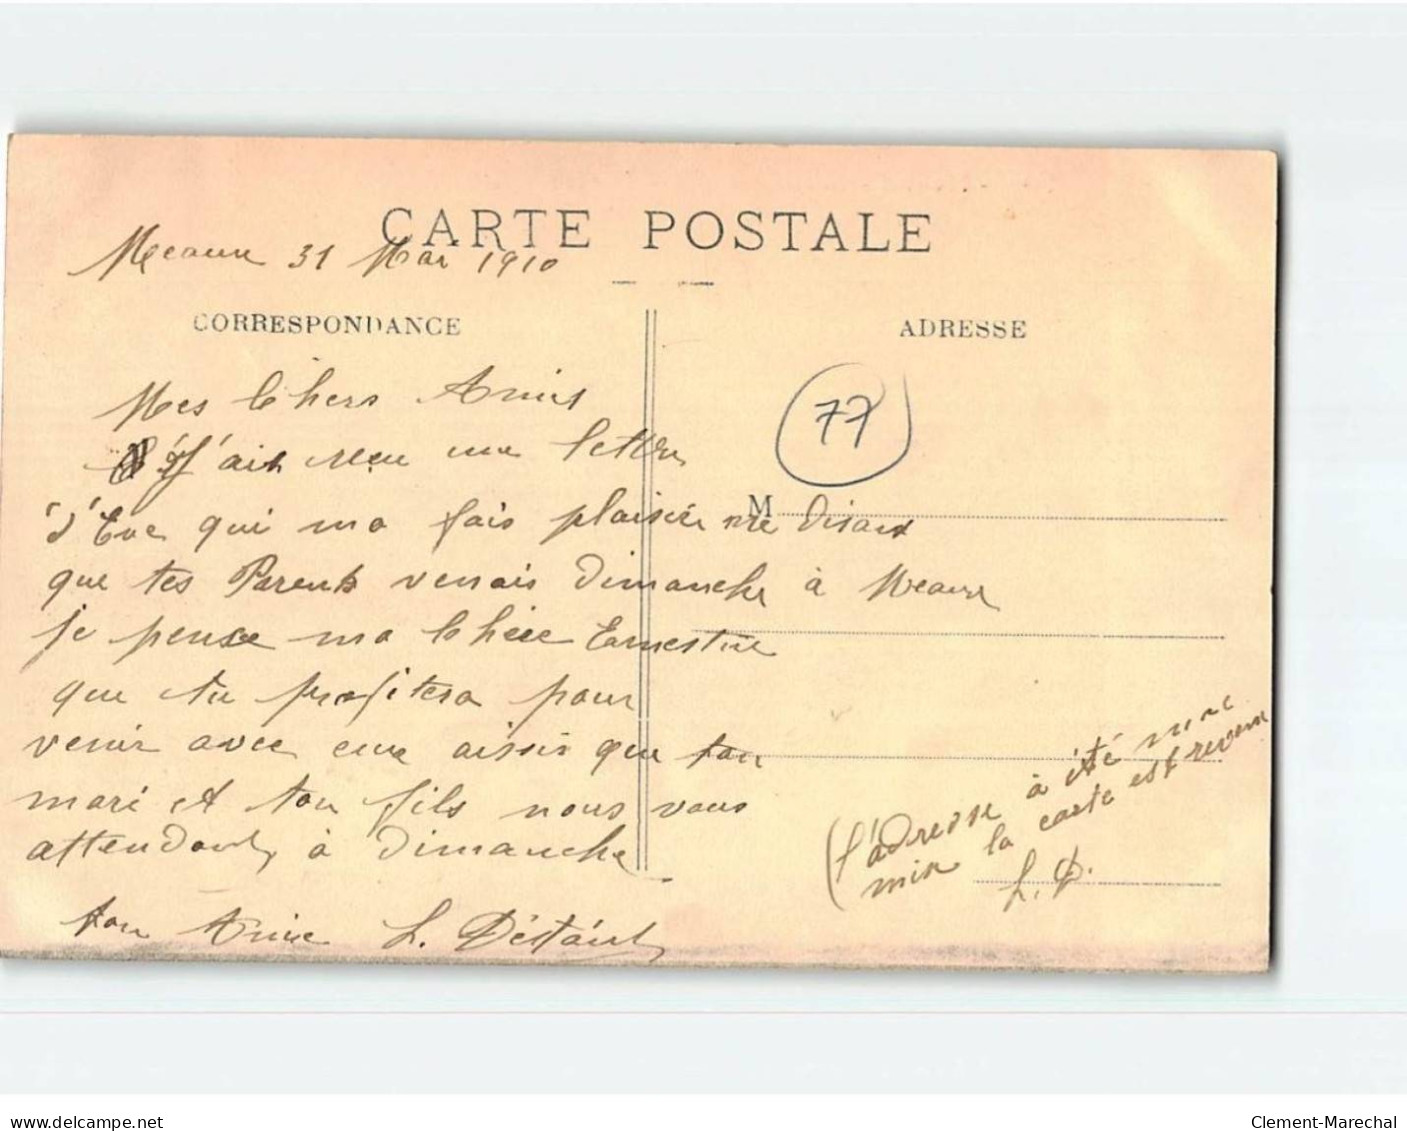 CARTE POSTALE
Meaux 31 Mai 1910
CORRESPONDANCE
ADRESSE
Mes Chers Amis
77
j'ait reçu une lettre
d'Eve qui ma fais plaisir me disant
M
que tes Parents venais dimanche à Meaux
je pense ma Chère Ernestine
que tu profitera pour
venir avec eux aissis que ton
mari et ton fils nous vous
attendont à dimanche
ton Amie L. Déstáint
(l'adresse à été mal
mise la carte est revenu
L. D.
www.delcampe.net
Clement-Marechal